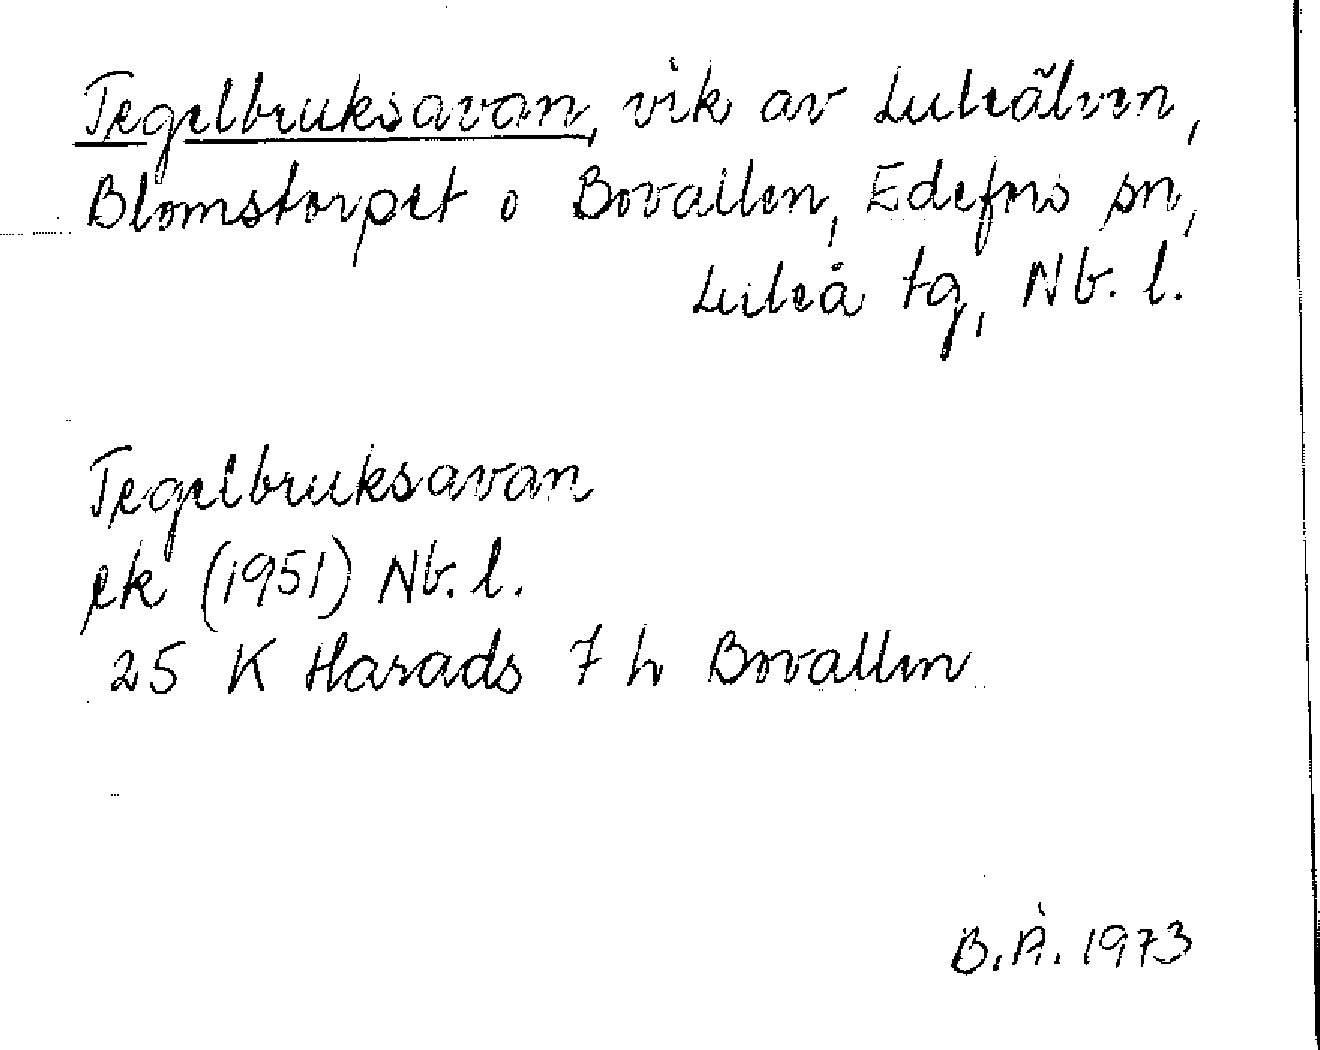 Tegelbruksavan, vik av Luleälven,
Blomstorpet o Bovallen, Edefors sn,
Luleå tg, Nb. l.
Tegelbruksavan
ek (1951) Nb. l.
25 K Harads 7 h Bovallen
B.Å. 1973